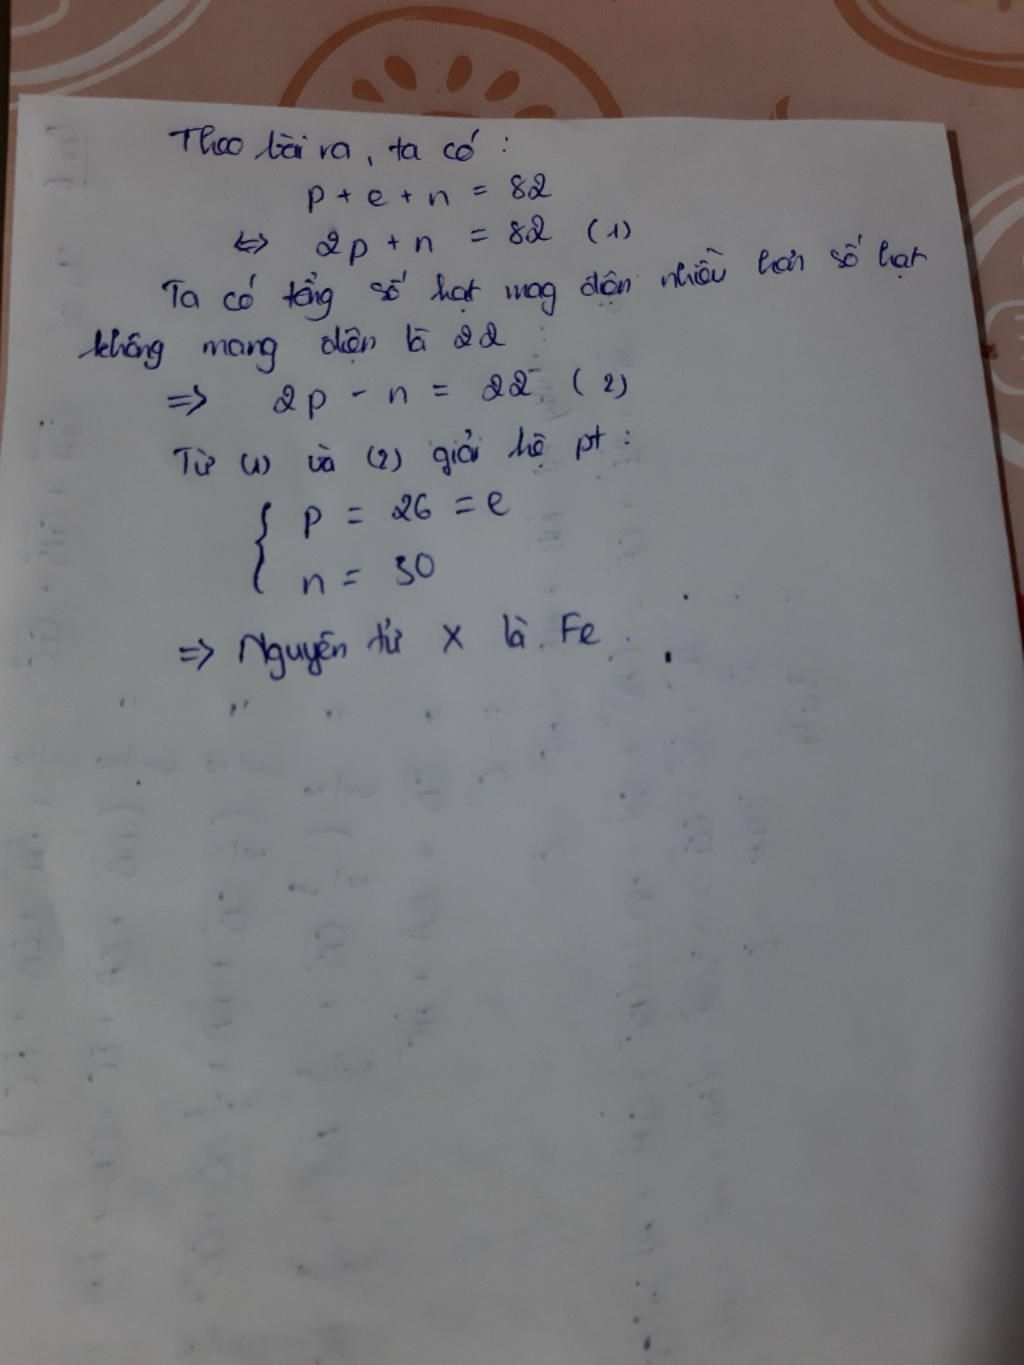 Theo bài ra, ta có :
p + e + n = 82
<=> 2p + n = 82 (1)
Ta có tổng số hạt mag điện nhiều hơn số hạt
không mang điện là 22 :
=> 2p - n = 22 (2)
Từ (1) và (2) giải hệ pt :
{ p = 26 = e
n = 30
=> Nguyên tử X là Fe.